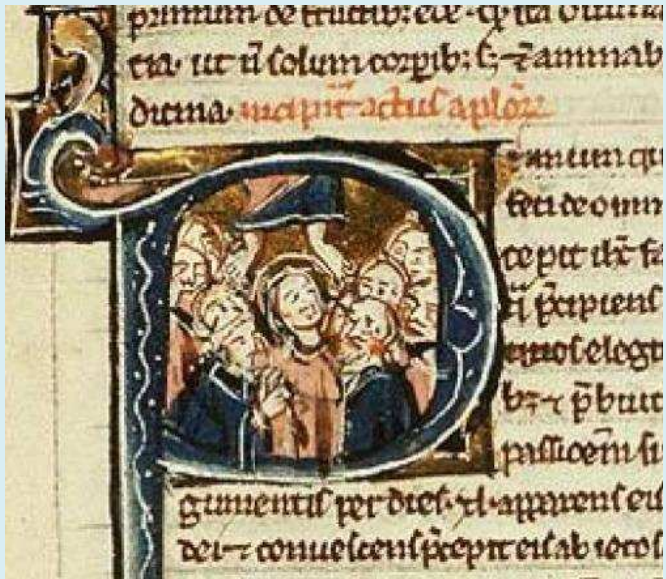 primum de
cia ut ñ solum corꝑib; ⁊ animab
dicina incipit actus aplo᷑ꝝ
feci de omn
cepit ih̅c fa
p̄cipiens
quos elegit
b; ⁊ p̄buit
passioem̄ su
gumentis per dies xl apparens eis
dei ⁊ conuescens p̄cepit eis ab ieros